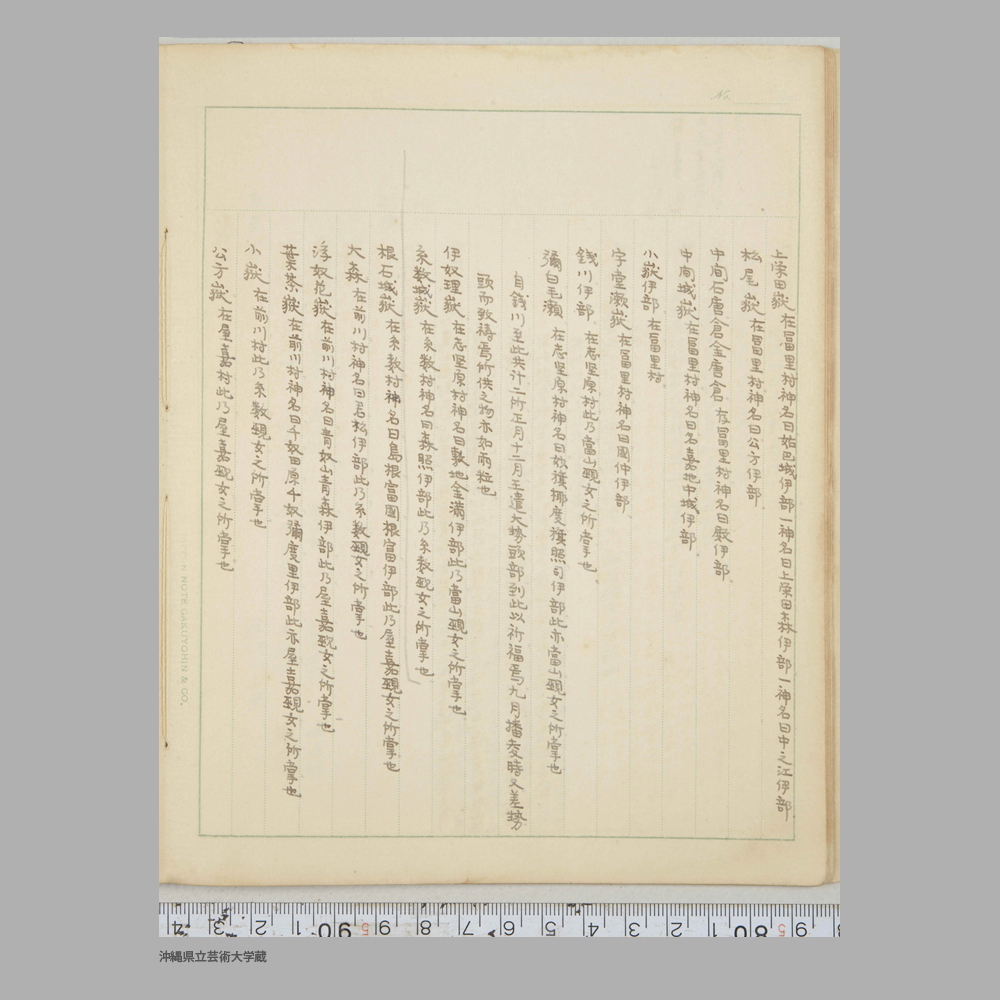 上栄田嶽 在冨里村神名曰姑巴城伊部一神名曰上栄田森伊部一神名曰中之江伊部
松尾嶽 在冨里村神名曰公方伊部
中间石唐倉金唐倉 在冨里村神名曰殿伊部
中间城嶽 在冨里村神名曰名嘉地中城伊部
小嶽伊部 在冨里村
宇堂瀬嶽 在冨里村神名曰國仲伊部
錢川伊部 在志堅原村此乃當山覡女之所掌也
彌白毛瀬 在志堅原村神名曰奴 度 照司伊部此亦當山覡女之所掌也
自錢川至此共計二所正月十二月王遣大勢頭部到此以祈福焉九月播麦時又差勢
頭而致祷焉所供之物亦如雨粒也
伊奴理嶽 在志堅原村神名曰敷地金滿伊部此乃當山覡女之所掌也
糸数城嶽 在糸数村神名曰森照伊部此乃糸数覡女之所掌也
根石城嶽 在糸数村神名曰島根富國根富伊部此乃屋嘉覡女之所掌也
大森 在前川村神名曰君松伊部此乃糸数覡女之所掌也
浮奴 嶽 在前川村神名曰青奴山青森伊部此乃屋嘉覡女之所掌也
嶽 在前川村神名曰千奴田原千奴彌度里伊部此亦屋嘉覡女之所掌也
小嶽 在前川村此乃糸数覡女之所掌也
公方嶽 在屋嘉村此乃屋嘉覡女之所掌也
No.
NOTE GAKUYOHIN & CO.
4 3 2 1 90 9 8 7 6 5 4 3 2 1 80
沖縄県立芸術大学蔵